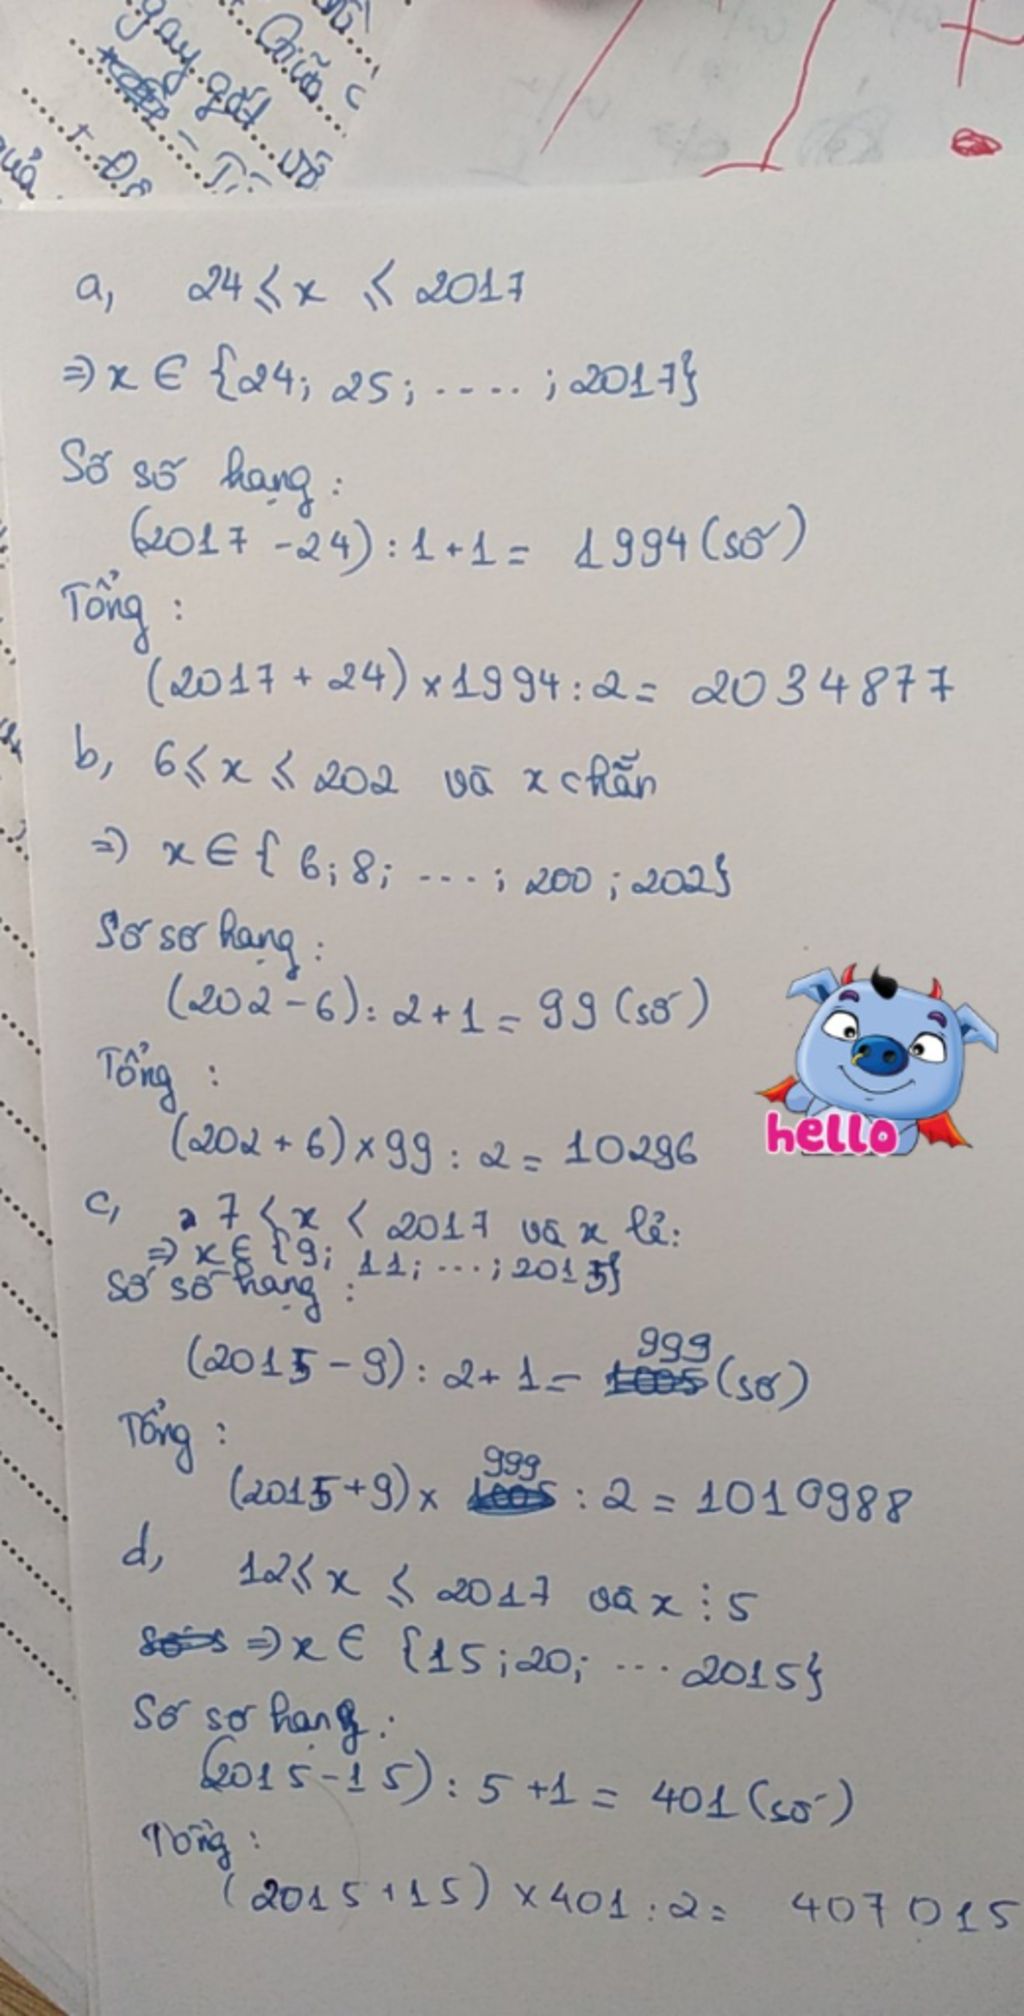 gay gắt
Giữa c
vô
Tì
+ Đề
quả
a, 24 ⩽ x ⩽ 2017
⇒ x ∈ {24; 25; .....; 2017}
Số số hạng :
(2017 - 24) : 1 + 1 = 1994 (số)
Tổng :
(2017 + 24) × 1994 : 2 = 2034877
b, 6 ⩽ x ⩽ 202 và x chẵn
⇒ x ∈ { 6; 8; ....; 200 ; 202}
Số số hạng :
(202 - 6) : 2 + 1 = 99 (số)
Tổng :
(202 + 6) × 99 : 2 = 10296
hello
c, 7 < x < 2017 và x lẻ:
⇒ x ∈ {9; 11; ...; 2015}
Số số hạng :
(2015 - 9) : 2 + 1 = 999 (số)
Tổng :
(2015 + 9) × 999 : 2 = 1010988
d, 12 ⩽ x ⩽ 2017 và x ⋮ 5
⇒ x ∈ {15; 20; ... 2015}
Số số hạng :
(2015 - 15) : 5 + 1 = 401 (số)
Tổng :
(2015 + 15) × 401 : 2 = 407015